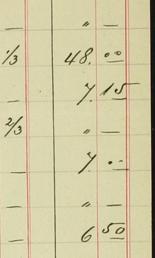 — " —
1/3 48. 00
— 7. 15
2/3 " —
— 7. --
— " —
— 6 50